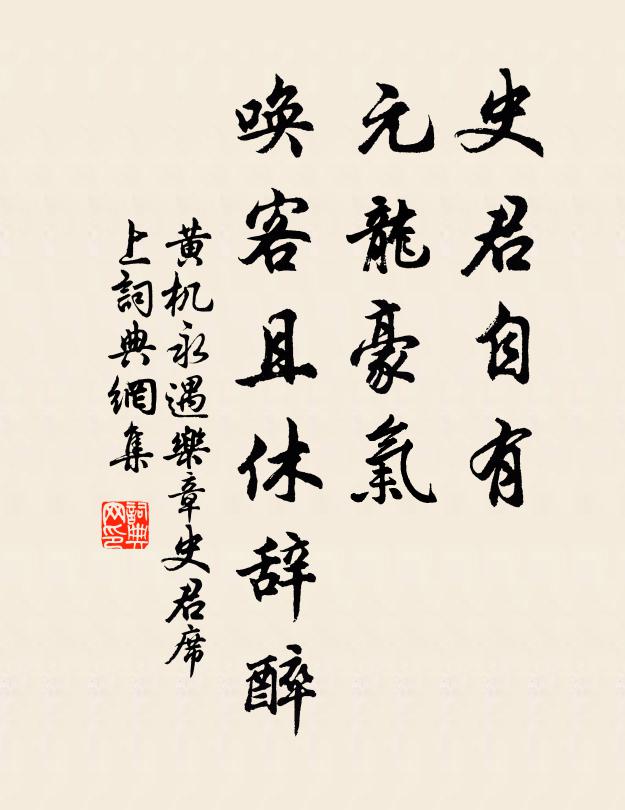 史君自有
元龍豪氣
喚客且休辞醉
黄机永遇樂章史君席
上詞典網集
詞典网印